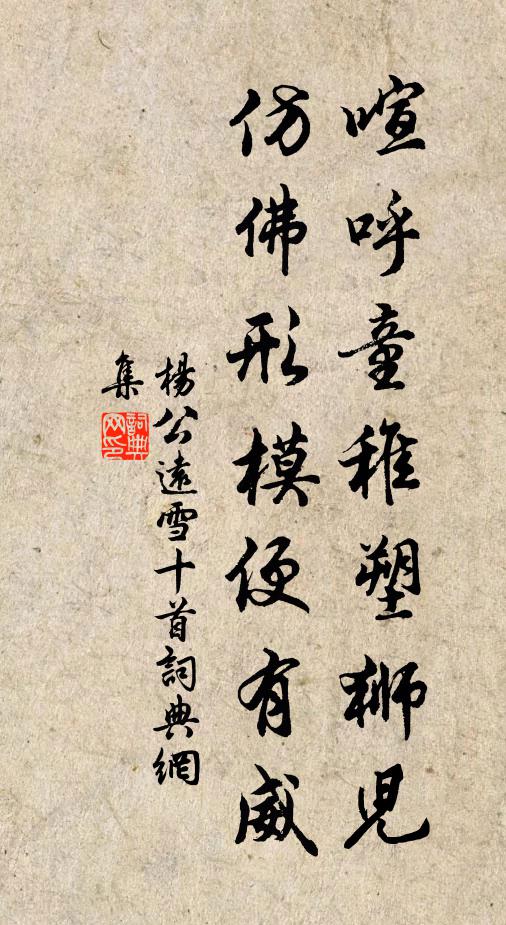 喧呼童稚塑獅兒
仿佛形模便有威
楊公遠雪十首詞典網
集
詞典网印